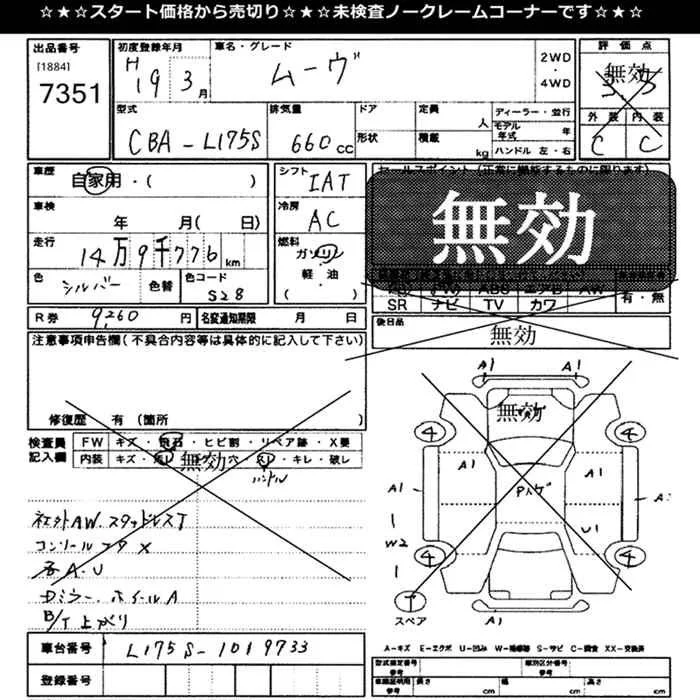 ☆★☆スタート価格から売切り☆★☆★未検査ノークレームコーナーです☆★☆
出品番号
[1884]
7351
初度登録年月
H 19 3月
車名・グレード
ムーヴ
2WD
・
4WD
評価点
無効
3.5
外装 内装
C C
型式
CBA-L175S
排気量
660cc
ドア
形状
定員
人
積載
kg
ディーラー・並行
モデル年式 年
ハンドル 左・右
車歴
自家用・( )
車検
年 月( 日)
走行
14万9千776km
色
シルバー
色替
色コード
S28
シフト
IAT
冷房
AC
燃料
ガソリン
・
軽・油
( )
セールスポイント(正常に機能するものに限ります)
無効
SR ナビ TV カワ
有・無
後日品
無効
R券 9,260円
名変通知期限 月 日
注意事項申告欄(不具合内容等は具体的に記入して下さい)
修復歴 有(箇所 )
検査員記入欄
FW キズ・飛石・ヒビ割・リペア跡・X要
内装 キズ・ ・穴・スレ・キレ・破レ
無効
ハンドル
社外AW.スタッドレスT
コンソールフタX
A.U
ホイールA
B/T上がり
無効
A1
A1
4
4
A1
A1
A1
A1
U1
W2
4
4
T
スペア
A1
A-キズ E-エクボ U-凹み W-補修跡 S-サビ C-腐食 XX-交換済
車台番号
L175S-1019733
登録番号
型式指定番号
参考
類別区分番号
参考
車庫証明用
参考
長さ cm
幅 cm
高さ cm